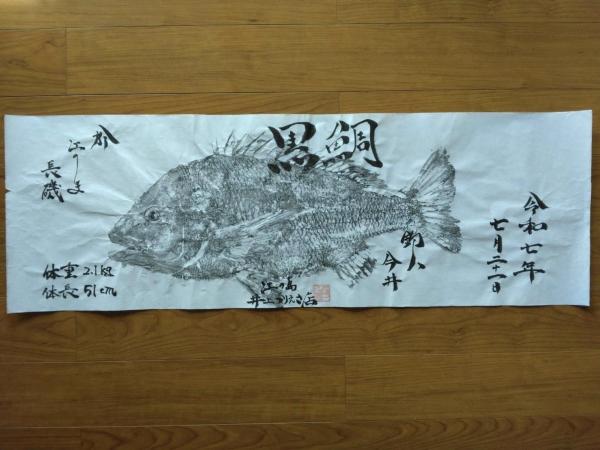 黒鯛
於
江のしま
長磯
体重 2.1kg
体長 51cm
釣人
今井
江の島
井上つりえさ店
令和七年
七月二十一日